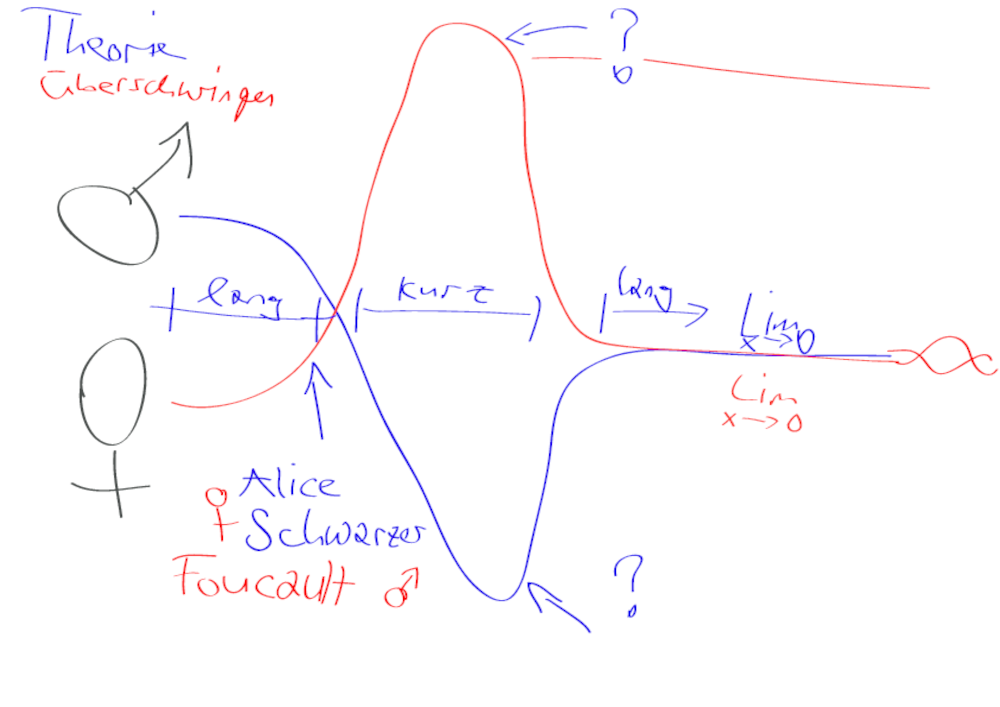 Theorie
Überschwingen
?
lang
kurz
lang
Lim
x→0
Lim
x→0
♀ Alice
Schwarzer
Foucault ♂
?